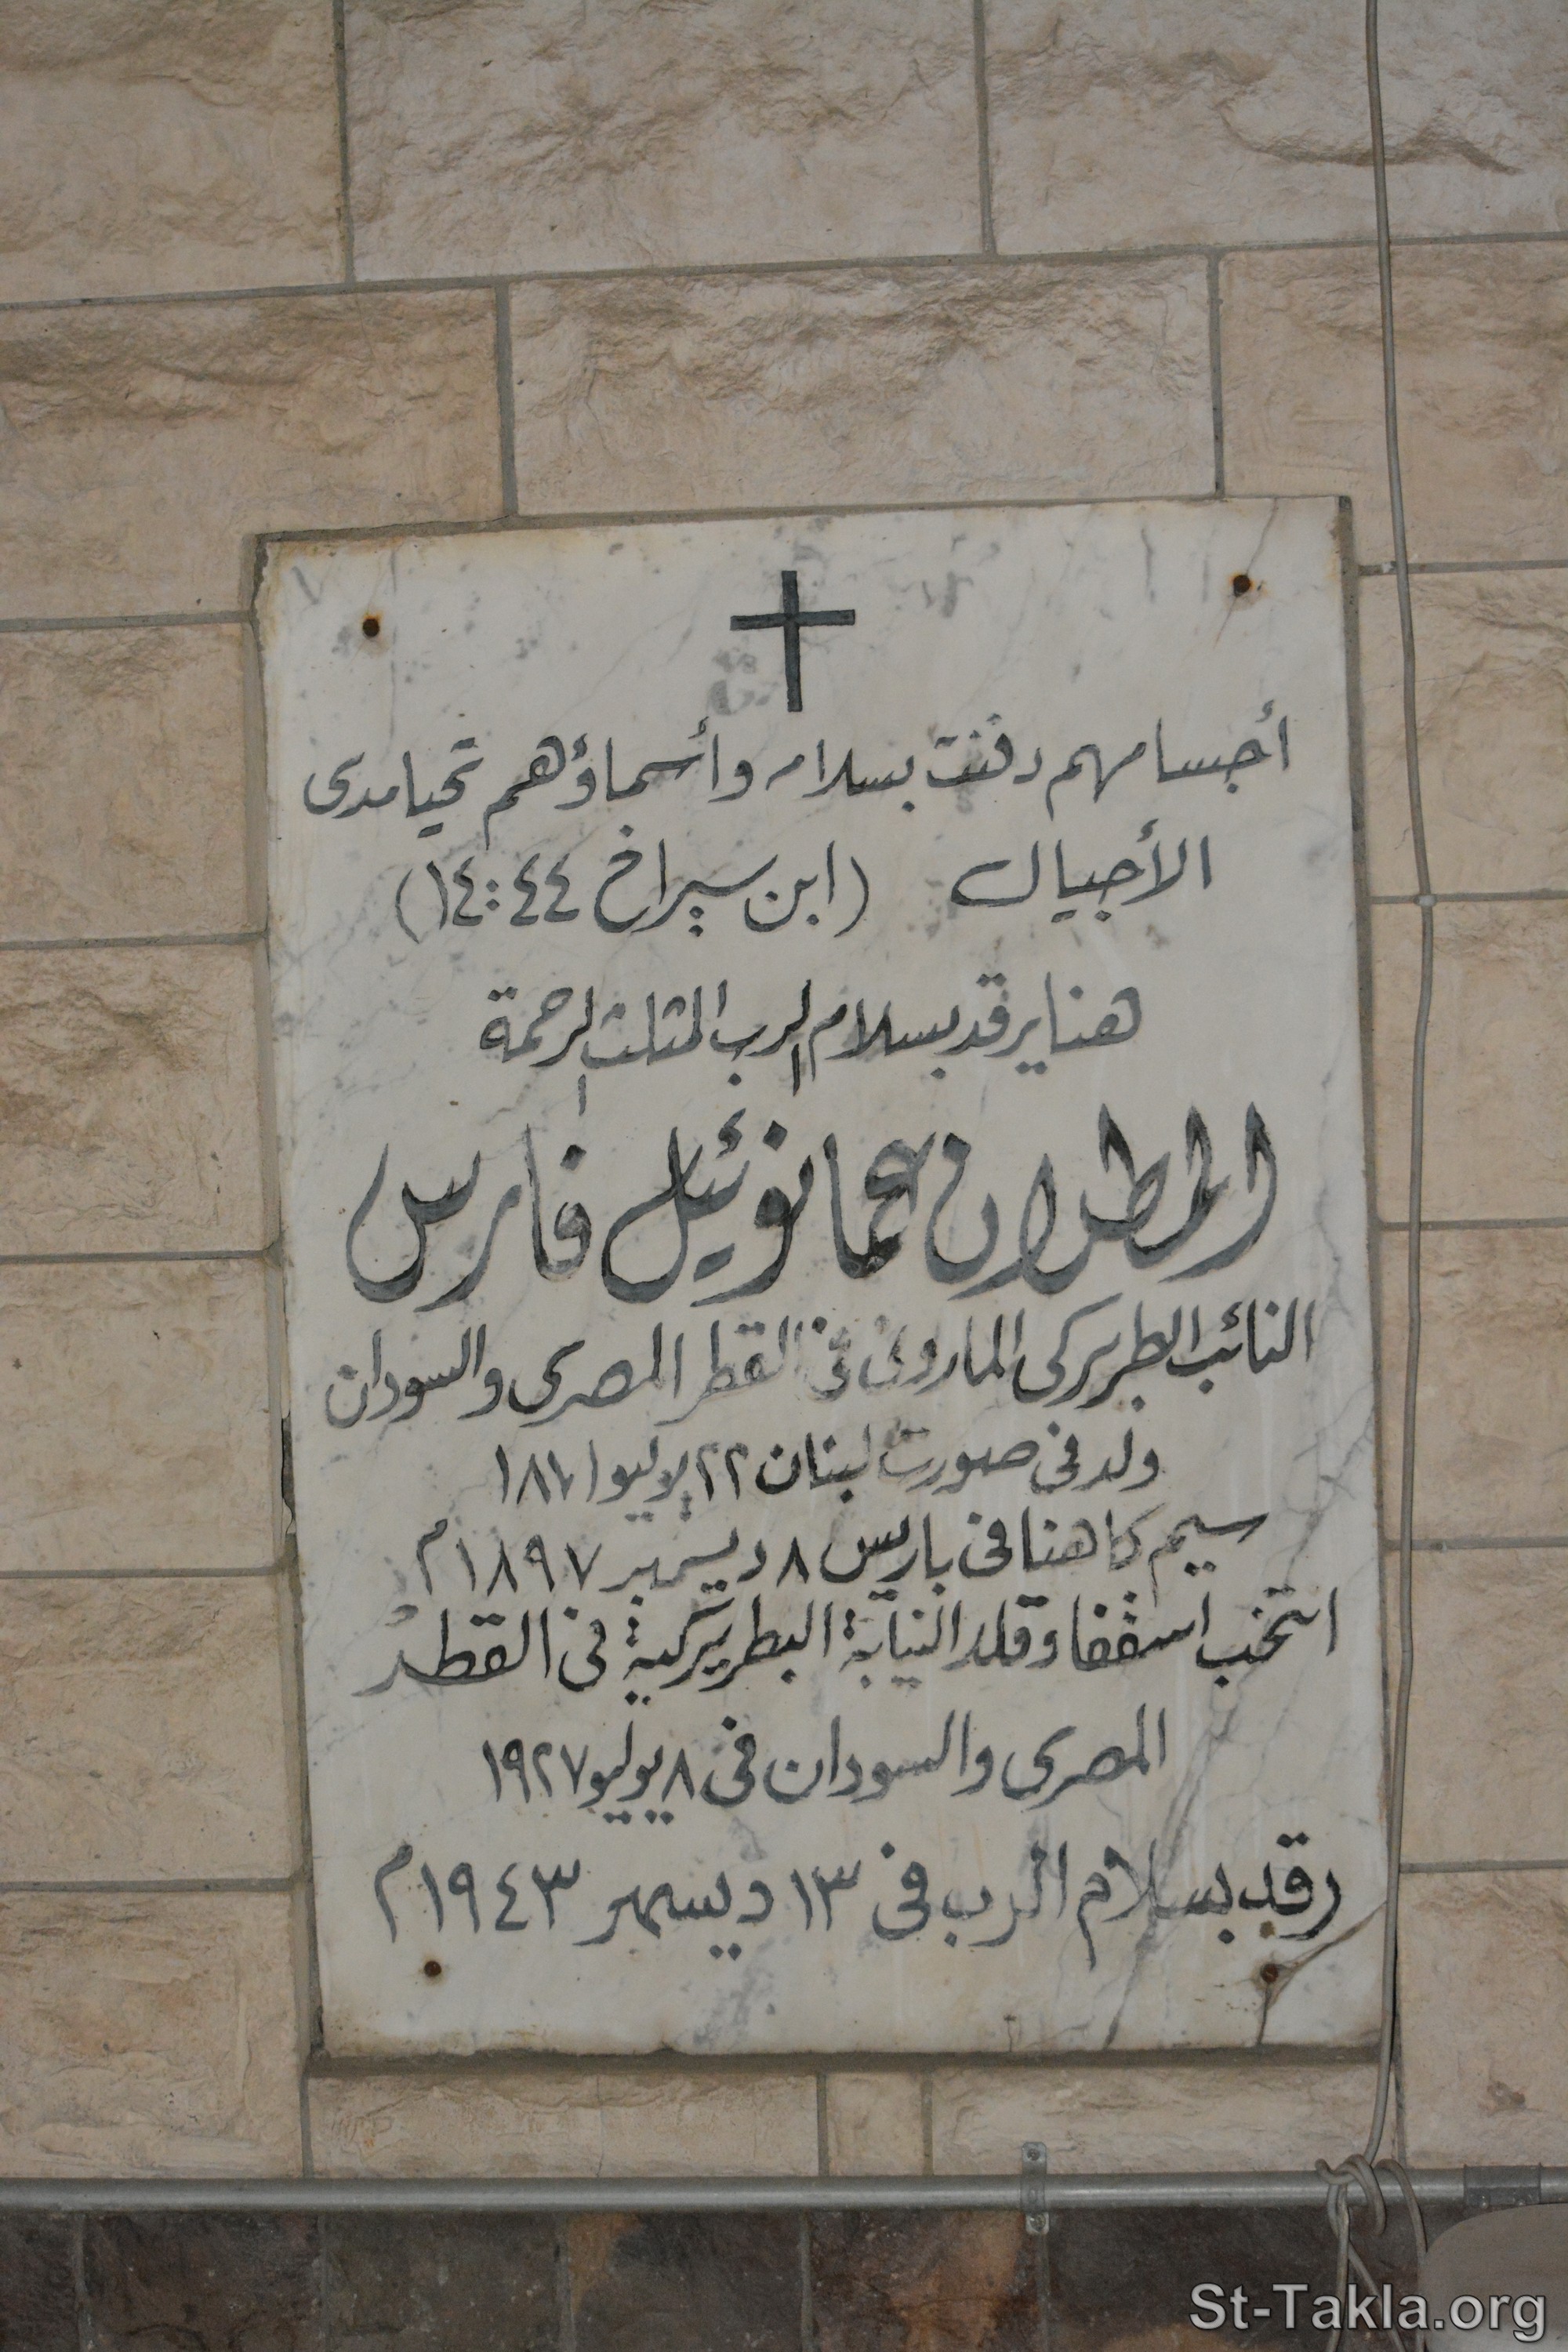 أجسامهم دفنت بسلام وأسماؤهم تحيا مدى
الأجيال (ابن سيراخ ٤٤:١٤)
هنا يرقد بسلام الرب المثلث الرحمة
المطران عمانوئيل فارس
النائب البطريركى المارونى فى القطر المصرى والسودان
ولد فى صورت لبنان ٢٢ يوليو ١٨٧١
سيم كاهنا فى باريس ٨ ديسمبر ١٨٩٧م
انتخب اسقفا وقلد النيابة البطريركية فى القطر
المصرى والسودان فى ٨ يوليو ١٩٢٧
رقد بسلام الرب فى ١٣ ديسمبر ١٩٤٣م
St-Takla.org